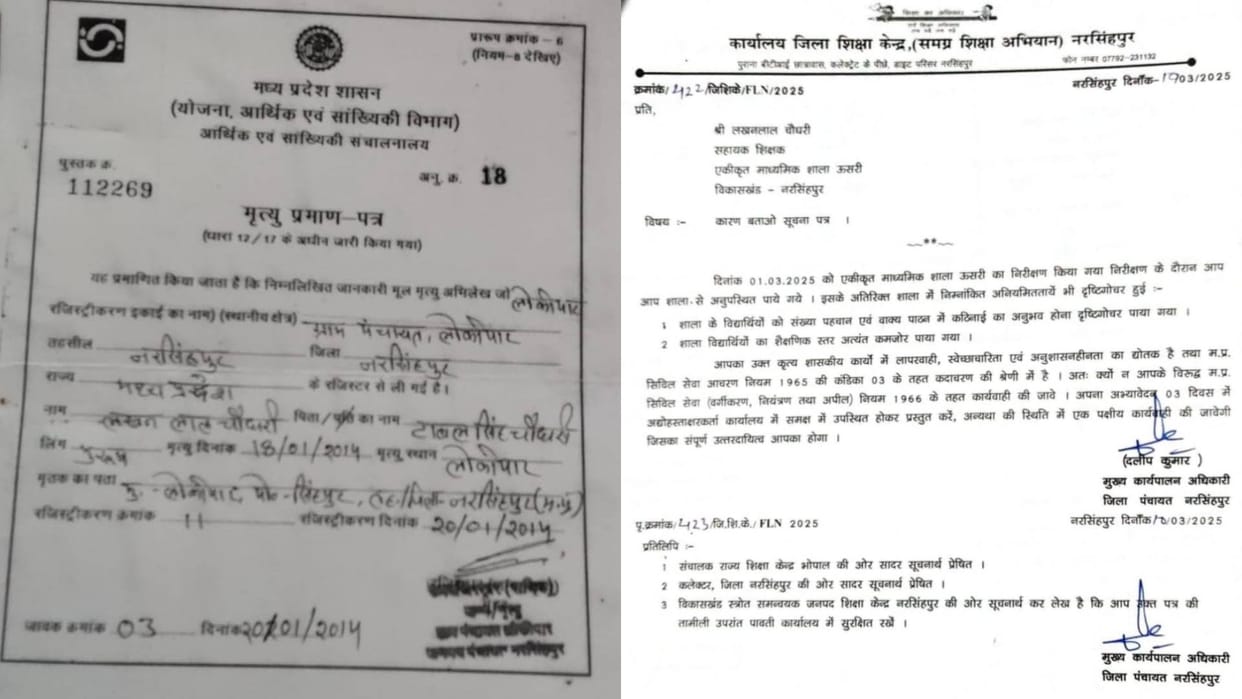 प्रारूप क्रमांक – 6
(नियम–8 देखिए)
मध्य प्रदेश शासन
(योजना, आर्थिक एवं सांख्यिकी विभाग)
आर्थिक एवं सांख्यिकी संचालनालय
पुस्तक क्र.
112269
अनु. क्र. 18
मृत्यु प्रमाण–पत्र
(धारा 12/17 के अधीन जारी किया गया)
यह प्रमाणित किया जाता है कि निम्नलिखित जानकारी मूल मृत्यु अभिलेख जो लोकीपार
रजिस्ट्रीकरण इकाई का नाम) (स्थानीय क्षेत्र) ग्राम पंचायत, लोकीपार
तहसील नरसिंहपुर जिला नरसिंहपुर
राज्य मध्य प्रदेश के रजिस्टर से ली गई है।
नाम लखन लाल चौदारी पिता/पति का नाम टावल सिंह चौदारी
लिंग पुरूष मृत्यु दिनांक 18/01/2014 मृत्यु स्थान लोकीपार
मृतक का पता मु.-लोकीपार, पो.-सिंहपुर, तह./जिला-नरसिंहपुर(म.प्र)
रजिस्ट्रीकरण क्रमांक 11 रजिस्ट्रीकरण दिनांक 20/01/2014
जावक क्रमांक 03 दिनांक 20/01/2014
जन्म/मृत्यु
ग्राम पंचायत लोकीपार
जनपद पंचायत नरसिंहपुर
शिक्षा का अधिकार
कार्यालय जिला शिक्षा केन्द्र,(समग्र शिक्षा अभियान) नरसिंहपुर
पुराना बीटीआई छात्रावास, कलेक्ट्रेट के पीछे, डाइट परिसर नरसिंहपुर फोन नम्बर 07792-231132
क्रमांक/422/जिशिके/FLN/2025 नरसिंहपुर दिनाँक-10/03/2025
प्रति,
श्री लखनलाल चौधरी
सहायक शिक्षक
एकीकृत माध्यमिक शाला ऊसरी
विकासखंड – नरसिंहपुर
विषय :– कारण बताओ सूचना पत्र ।
~~**~~
दिनांक 01.03.2025 को एकीकृत माध्यमिक शाला ऊसरी का निरीक्षण किया गया निरीक्षण के दौरान आप
आप शाला से अनुपस्थित पाये गये । इसके अतिरिक्त शाला में निम्नांकित अनियमिततायें भी दृष्टिगोचर हुई :–
1 शाला के विद्यार्थियों को संख्या पहचान एवं वाक्य पाठन में कठिनाई का अनुभव होना दृष्टिगोचर पाया गया ।
2 शाला विद्यार्थियों का शैक्षणिक स्तर अत्यंत कमजोर पाया गया ।
आपका उक्त कृत्य शासकीय कार्यो में लापरवाही, स्वेच्छाचारिता एवं अनुशासनहीनता का द्योतक है तथा म.प्र.
सिविल सेवा आचरण नियम 1965 की कंडिका 03 के तहत कदाचरण की श्रेणी में है । अतः क्यों न आपके विरूद्ध म.प्र.
सिविल सेवा (वर्गीकरण, नियंत्रण तथा अपील) नियम 1966 के तहत कार्यवाही की जावे । अपना अभ्यावेदन 03 दिवस में
अद्योहस्ताक्षरकर्ता कार्यालय में समक्ष में उपस्थित होकर प्रस्तुत करें, अन्यथा की स्थिति में एक पक्षीय कार्यवाही की जावेगी
जिसका संपूर्ण उत्तरदायित्व आपका होगा ।
(दलीप कुमार )
मुख्य कार्यपालन अधिकारी
जिला पंचायत नरसिंहपुर
पृ.क्रमांक/423/जि.शि.के./ FLN 2025 नरसिंहपुर दिनाँक/10/03/2025
प्रतिलिपि :–
1 संचालक राज्य शिक्षा केन्द्र भोपाल की ओर सादर सूचनार्थ प्रेषित ।
2 कलेक्टर, जिला नरसिंहपुर की ओर सादर सूचनार्थ प्रेषित ।
3 विकासखंड स्त्रोत समन्वयक जनपद शिक्षा केन्द्र नरसिंहपुर की ओर सूचनार्थ कर लेख है कि आप उक्त पत्र की
तामीली उपरांत पावती कार्यालय में सुरक्षित रखें ।
मुख्य कार्यपालन अधिकारी
जिला पंचायत नरसिंहपुर